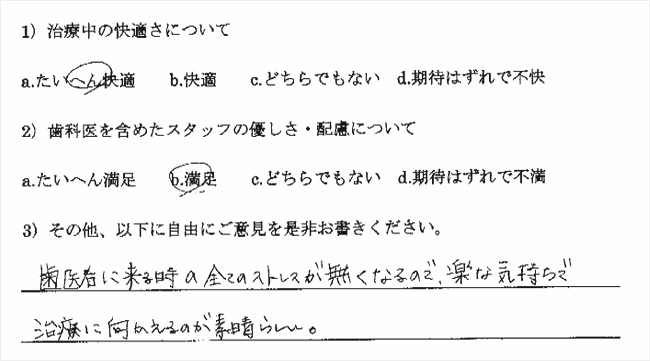 1) 治療中の快適さについて
a.たいへん快適 b.快適 c.どちらでもない d.期待はずれで不快
2) 歯科医を含めたスタッフの優しさ・配慮について
a.たいへん満足 b.満足 c.どちらでもない d.期待はずれで不満
3) その他、以下に自由にご意見を是非お書きください。
歯医者に来る時の全てのストレスが無くなるので、楽な気持ちで
治療に向かえるのが素晴らしい。